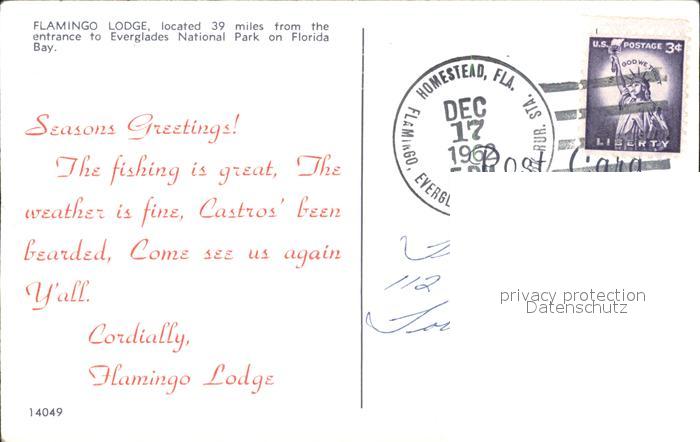 FLAMINGO LODGE, located 39 miles from the
entrance to Everglades National Park on Florida
Bay.
Seasons Greetings!
The fishing is great, The
weather is fine, Castros' been
bearded, Come see us again
Y'all.
Cordially,
Flamingo Lodge
14049
HOMESTEAD, FLA.
FLAMINGO, EVERGL
RUR. STA.
DEC
17
U.S. POSTAGE 3¢
LIBERTY
Post Card
112
privacy protection
Datenschutz